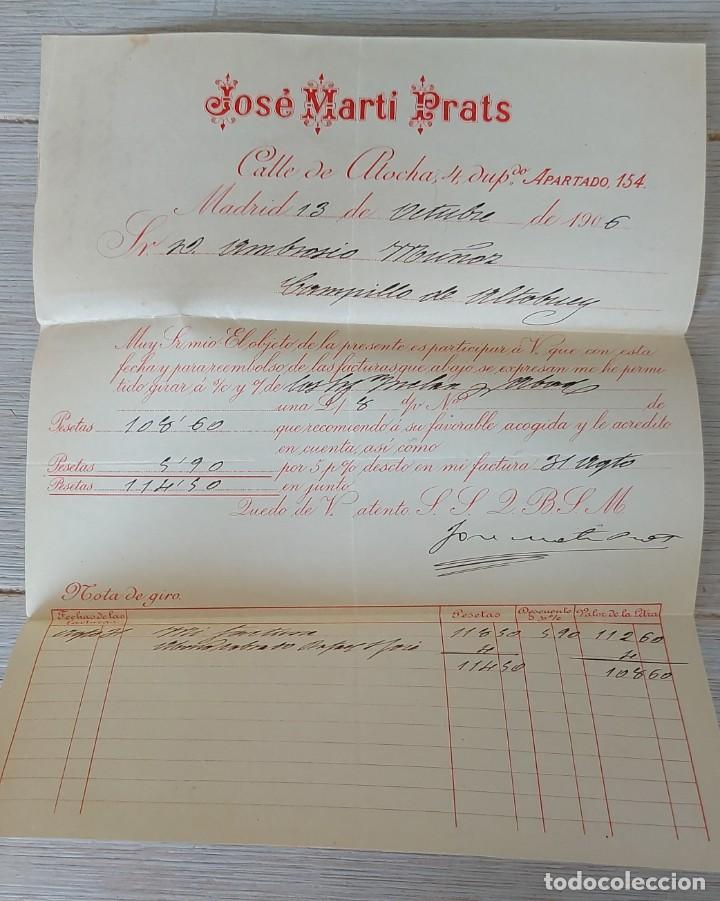 José Marti Prats
Calle de Atocha, 4, dupdo. APARTADO, 154.
Madrid 13 de Octubre de 1906
Sr. D. Ambrosio Muñoz
Campillo de Altobuey
Muy Sr. mio: El objeto de la presente es participar á V. que con esta
fecha y para reembolso de las facturas que abajo se expresan me he permi
tido girar á %o y % de
una L/ 8 d/v Nº de
Pesetas 108'60 que recomiendo á su favorable acogida y le acredito
en cuenta, así como
Pesetas 5'90 por 5 p% descto en mi factura 31 Agto
Pesetas 114'50 en junto
Quedo de V. atento. S. S. Q. B. S. M.
José Marti Prats
Nota de giro.
Fechas de las facturas Pesetas Descuento 5 p% Valor de la Letra
Agto 31 Mi factura 118 50 5 90 112 60
4 4
114 50 108 60
todocoleccion.net